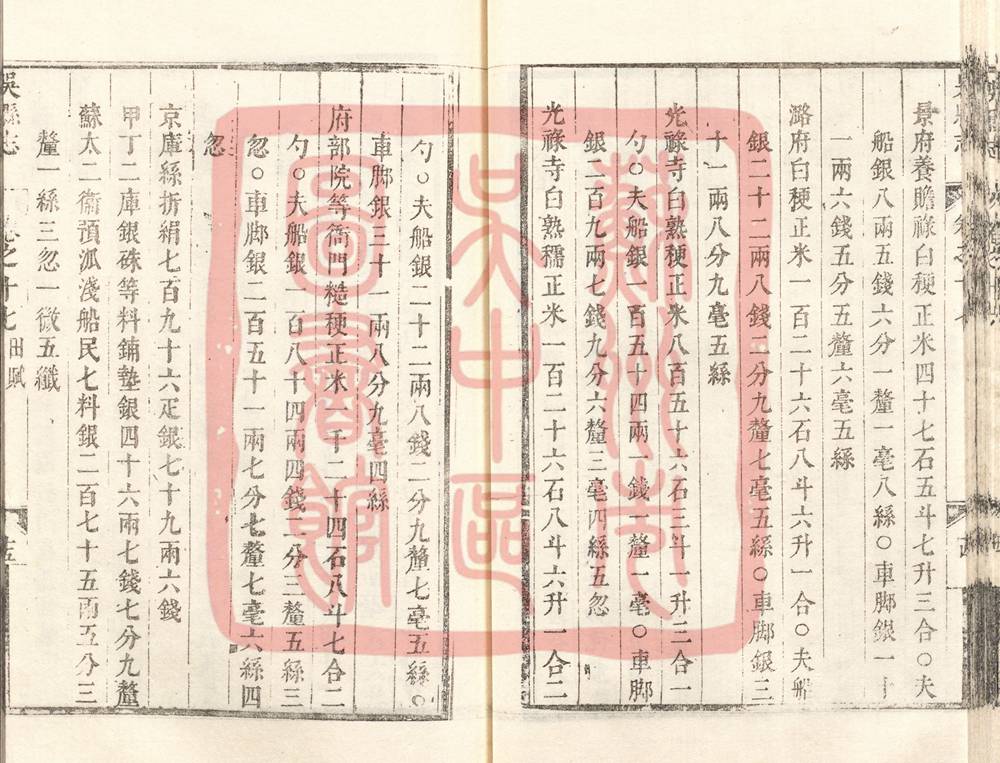 景府養贍祿白粳正米四十七石五斗七升三合○夫
船銀八兩五錢六分一釐一毫八絲○車脚銀一十
一兩六錢五分五釐六毫五絲
潞府白粳正米一百二十六石八斗六升一合○夫船
銀二十二兩八錢二分九釐七毫五絲○車脚銀三
十一兩八分九毫五絲
光祿寺白熟粳正米八百五十六石三斗一升三合一
勺○夫船銀一百五十四兩一錢一釐一毫○車脚
銀二百九兩七錢九分六釐三毫四絲五忽
光祿寺白熟糯正米一百二十六石八斗六升一合二
勺○夫船銀二十二兩八錢二分九釐七毫五絲○
車脚銀三十一兩八分九毫四絲
府部院等衙門糙粳正米一千二十四石八斗七合二
勺○夫船銀一百八十四兩四錢二分三釐五絲三
忽○車脚銀二百五十一兩七分七釐七毫六絲四
忽
京庫絲折絹七百九十六疋銀七十九兩六錢
甲丁二庫銀硃等料鋪墊銀四十六兩七錢七分九釐
蘇太二衞預派淺船民七料銀二百七十五兩五分三
釐一絲三忽一微五纖
吳縣志
卷之十七 田賦
五
蘇州市
吳中區
圖書館